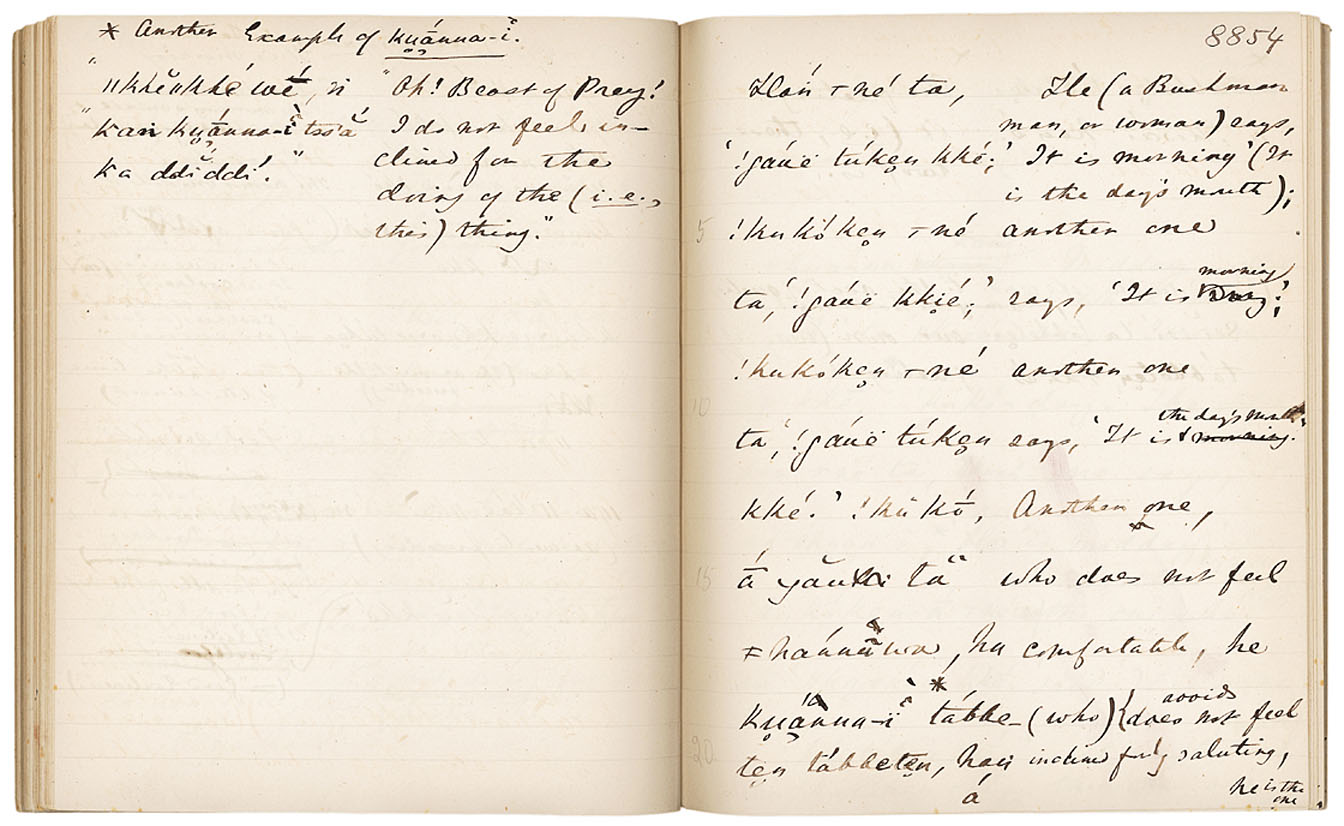 * Another Example of kuánna-ĭ.
"ııkhĕŭkhé wé, ń "Oh! Beast of Prey!
"kaṅ kuánna-ĭ tss'ă I do not feel in-
ka ddĭddí." clined for the
doing of the (i.e.,
this) thing."
8854
Haṅ ⊤né ta, He (a Bushman
man, or woman) says,
'!gáuë túken kké;' 'It is morning' (It
is the day's mouth);
5 !kukó ken ⊤né another one
ta, '!gáuë kkié;' says, 'It is morning;'
!kukóken ⊤né another one
10
ta, '!gáuë túken says, 'It is the day's mouth.'
kké.' !kŭ kó, Another one,
15 á yaŭki tă who does not feel
⊤hánnŭwa, ha comfortable, he
kuánna-ĭ tábbe- * (who) {avoids does not feel
20 ten tábbeten, haṅ inclined for} saluting,
á he is the
one